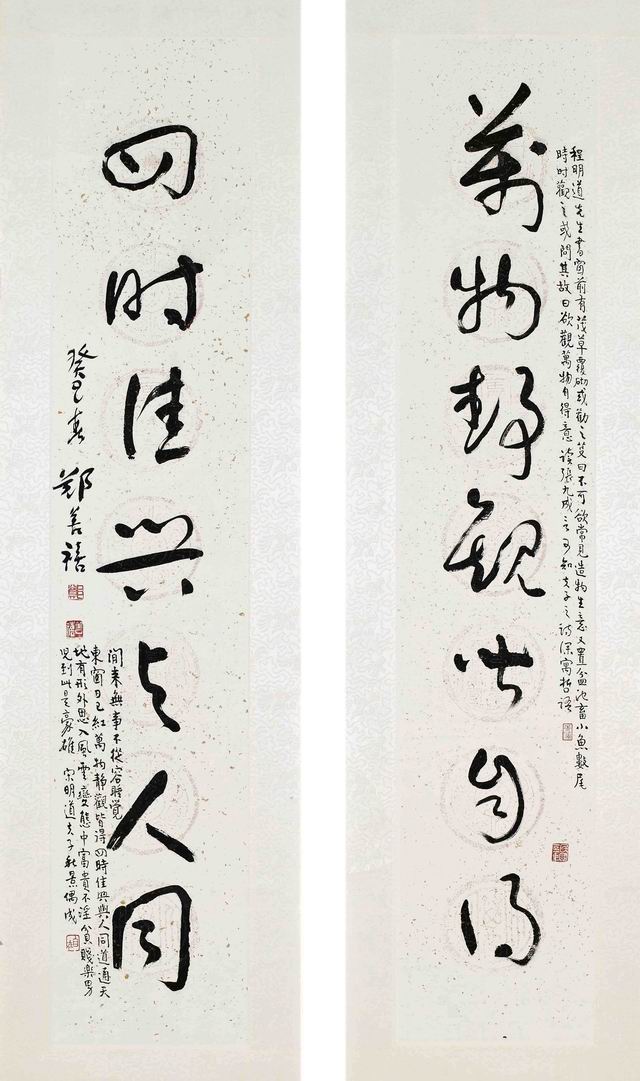 程明道先生書窗前有茂草覆砌或勸之芟曰不可欲常見造物生意又置盆池畜小魚數尾
時时觀之或問其故曰欲觀萬物自得意 读張九成言可知夫子之詩深寓哲语
萬物静观皆自得
四时佳兴与人同
閒来無事不從容睡覺
東窗日已紅萬物静觀皆得四時佳興與人同道通天
地有形外思入風雲變態中富貴不淫貧賤樂男
児到此是豪雄 宋明道夫子秋景偶成
癸巳春 鄭善禧